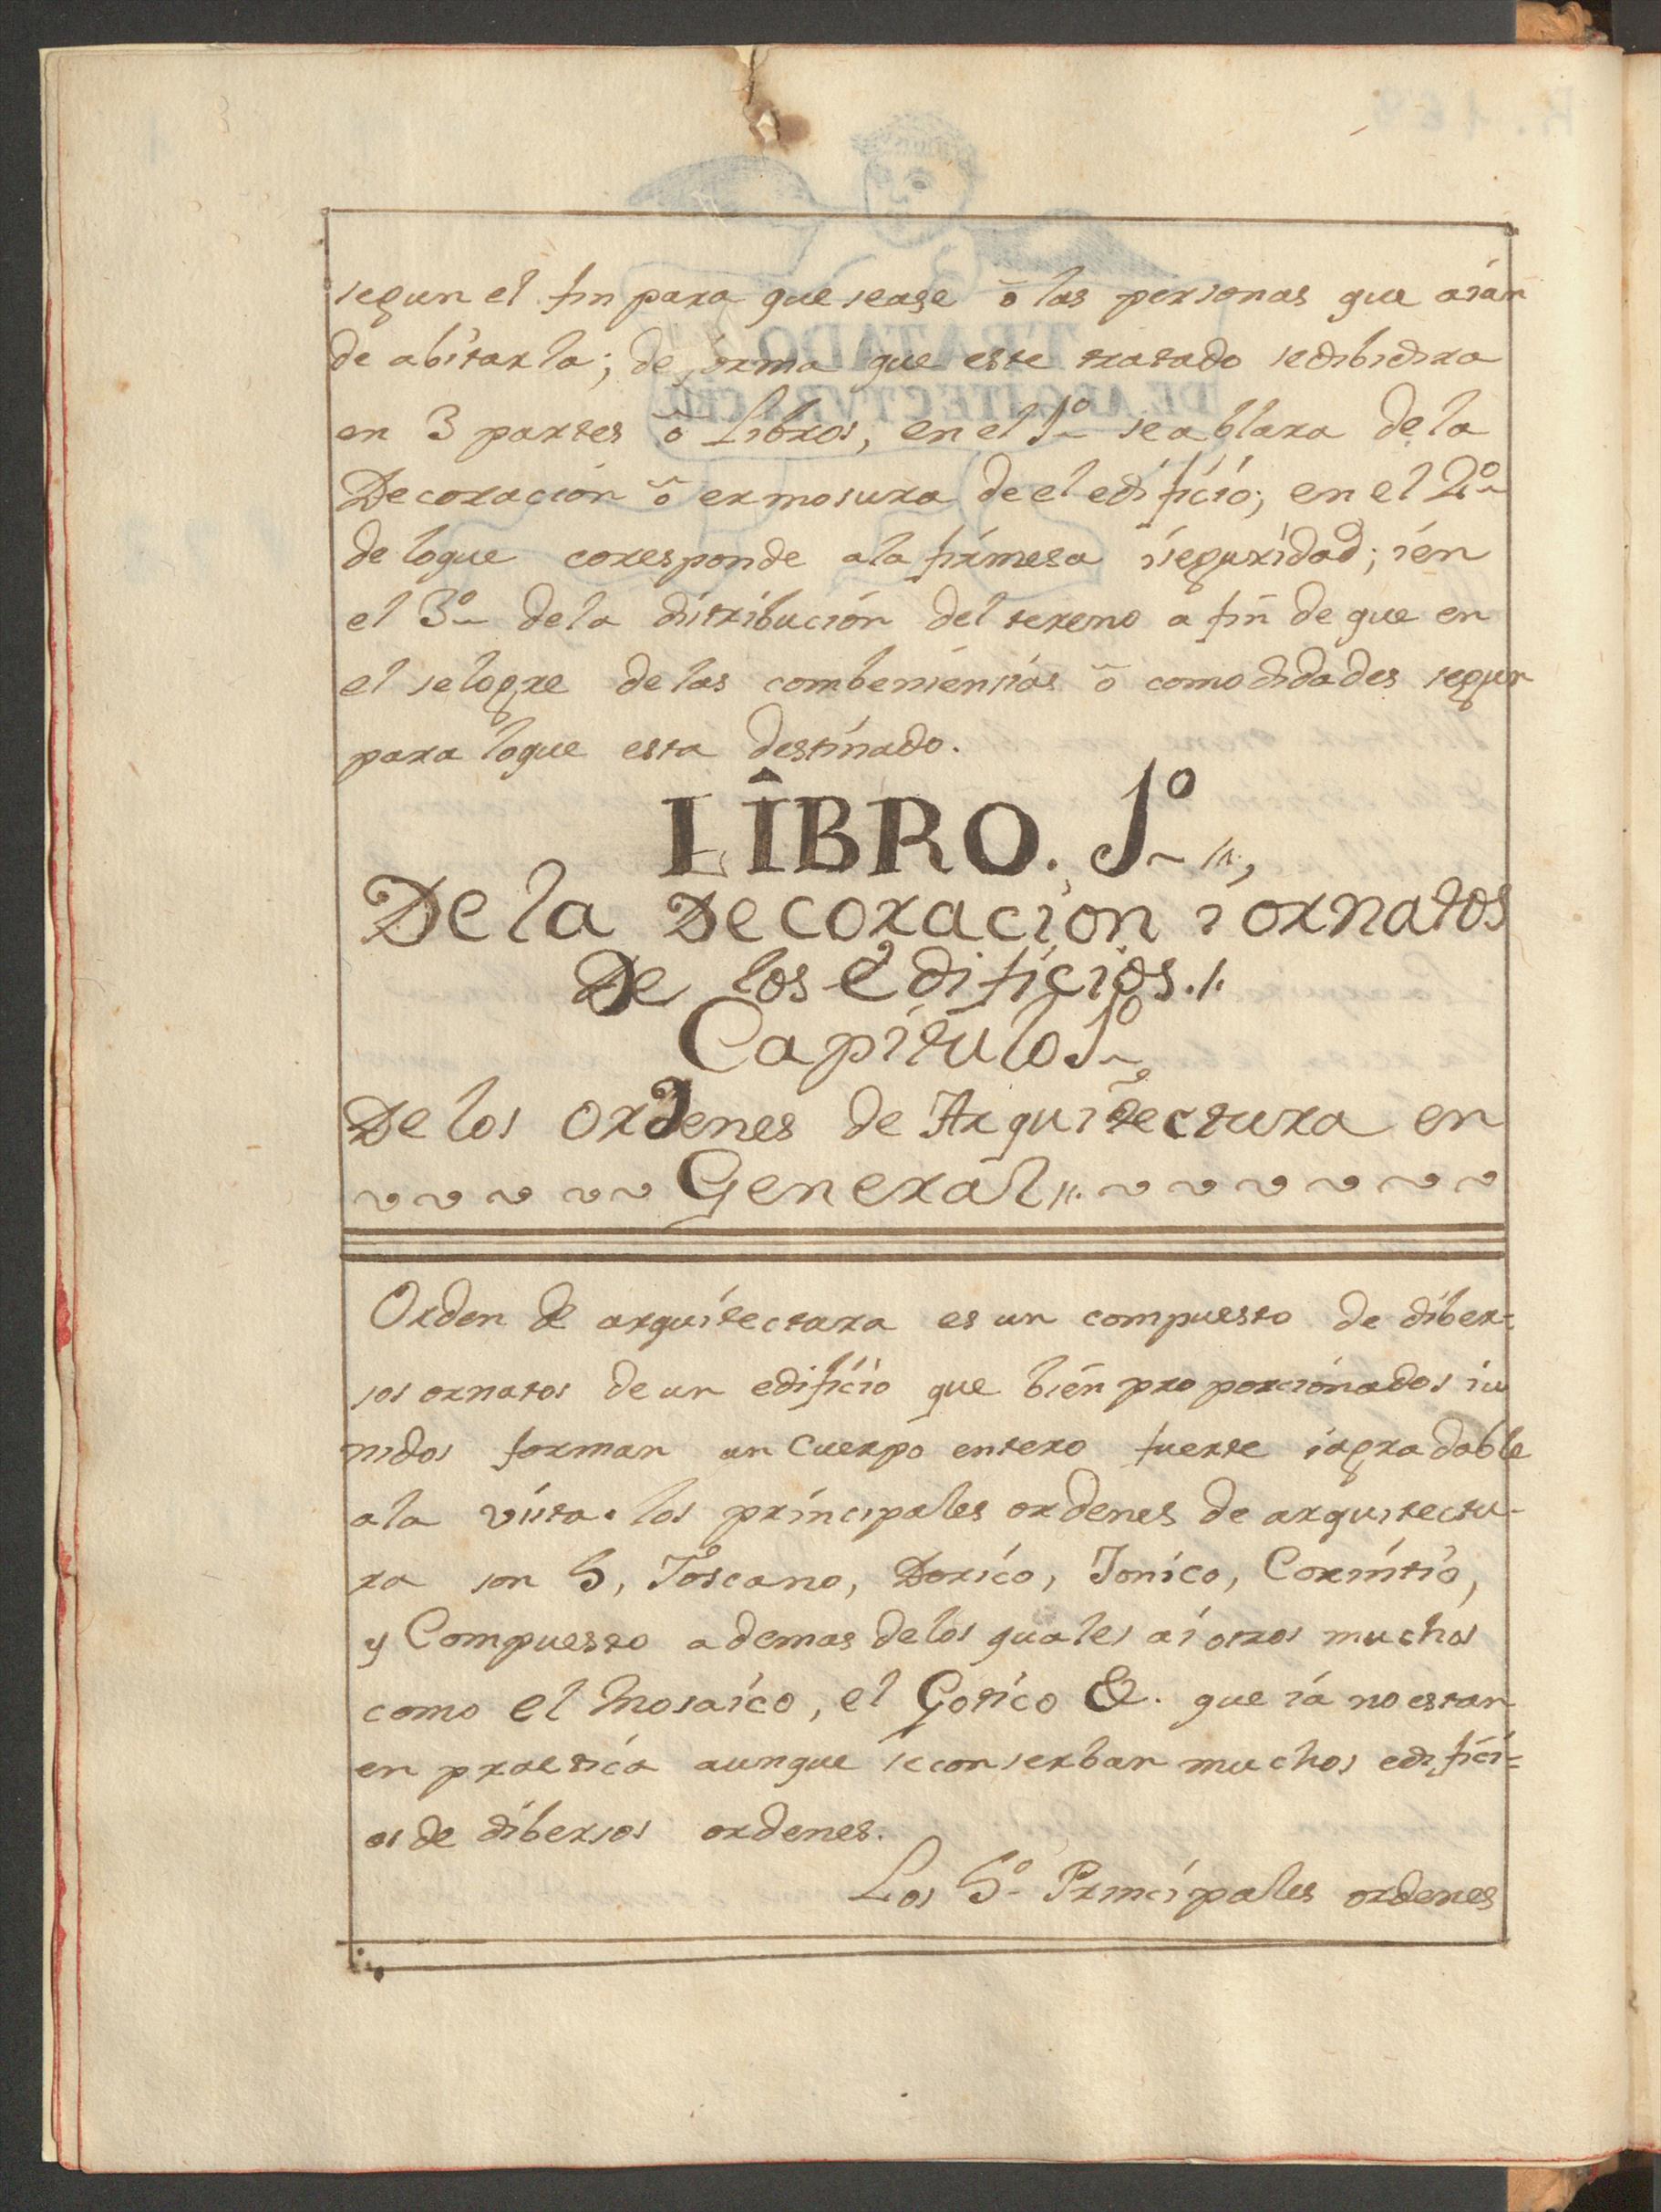 segun el fin para que seage ō las personas que aián
de abitarla; de forma que este tratado sedibidira
en 3 partes ō Libros, en el 1º se ablara de la
Decoración ō ermosura de el edificio; en el 2º
de loque coresponde ala firmesa iseguridad; ien
el 3º dela distribución del tereno a fin de que en
el selogre de las combeniensias ō comodidades segun
para loque esta destinado.
LIBRO. 1º
De la Decoracion i ornatos
De los edificios.
Capitulo 1º
De los ordenes de Arquitectura en
General
Orden de arquitectura es un compuesto de diber=
sos ornatos de un edificio que bién proporciónados iu
nidos forman un Cuerpo entero fuerte iagradable
ala vista. los principales ordenes de arquitectu-
ra son 5, Toscano, Dorico, Jonico, Corintio,
y Compuesto ademas delos quales ai otros muchos
como el Mosaico, el Gotico &. que iá no estan
en practica aunque seconserban muchos edifici=
os de dibersos ordenes.
Los 5º Principales ordenes
TRATADO
DE ARQITECTVRA CIUIL